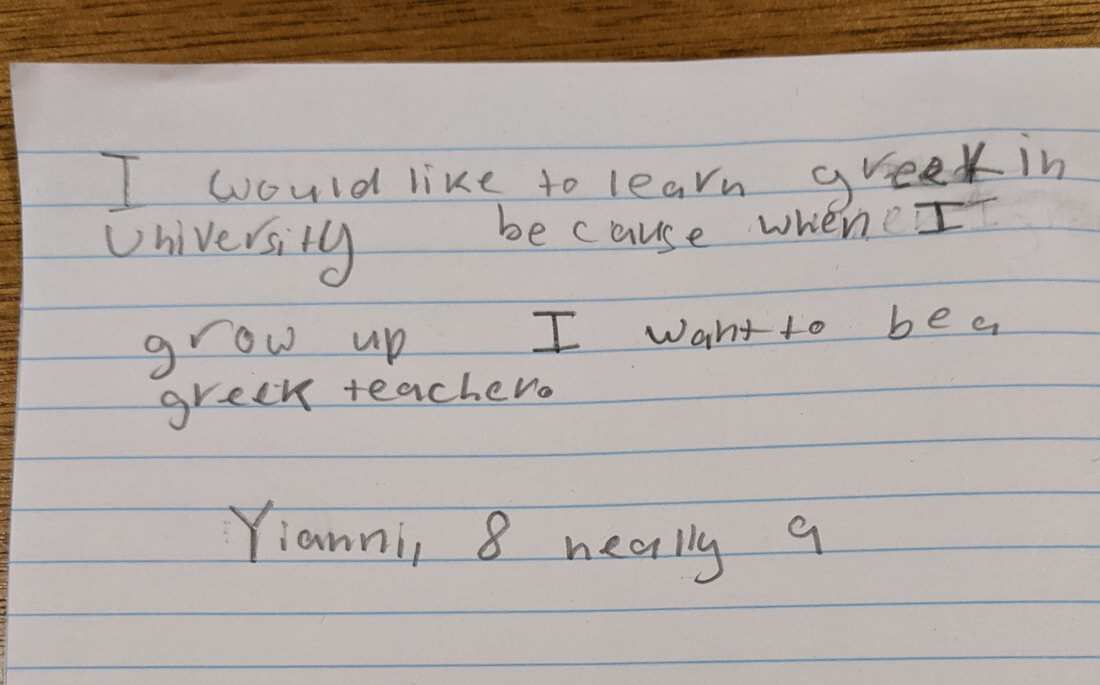 I would like to learn greek in
University because when I
grow up I want to be a
greek teacher.
Yianni, 8 neally 9